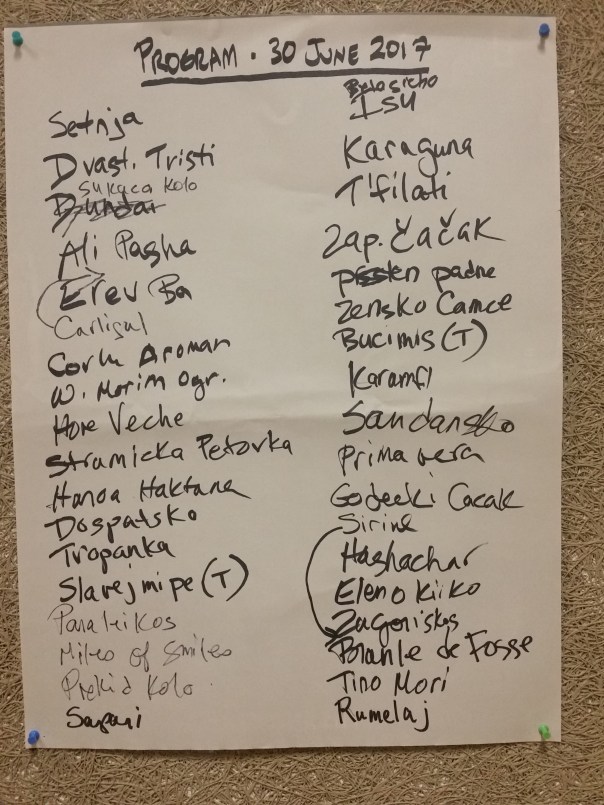 PROGRAM . 30 JUNE 2017
Setnja
Dvast. Tristi
Sukaca Kolo
Ali Pasha
Erev Ba
Carligul
Corlu Aroman
W. Morim Ogr.
Hore Veche
Strumicka Petorka
Hanoa Haktana
Dospatsko
Tropanka
Slavej mi pe (T)
Miles of Smiles
Prekid Kolo
Sapari
ISU
Karaguna
T'filati
Zap. Čačak
padne
Zensko Camce
Bucimis (T)
Karamfil
Sandansko
Prima vera
Godecki Cacak
Sirine
Hashachar
Eleno Kiiko
Zagoriskos
Branle de Fosse
Tino Mori
Rumelaj